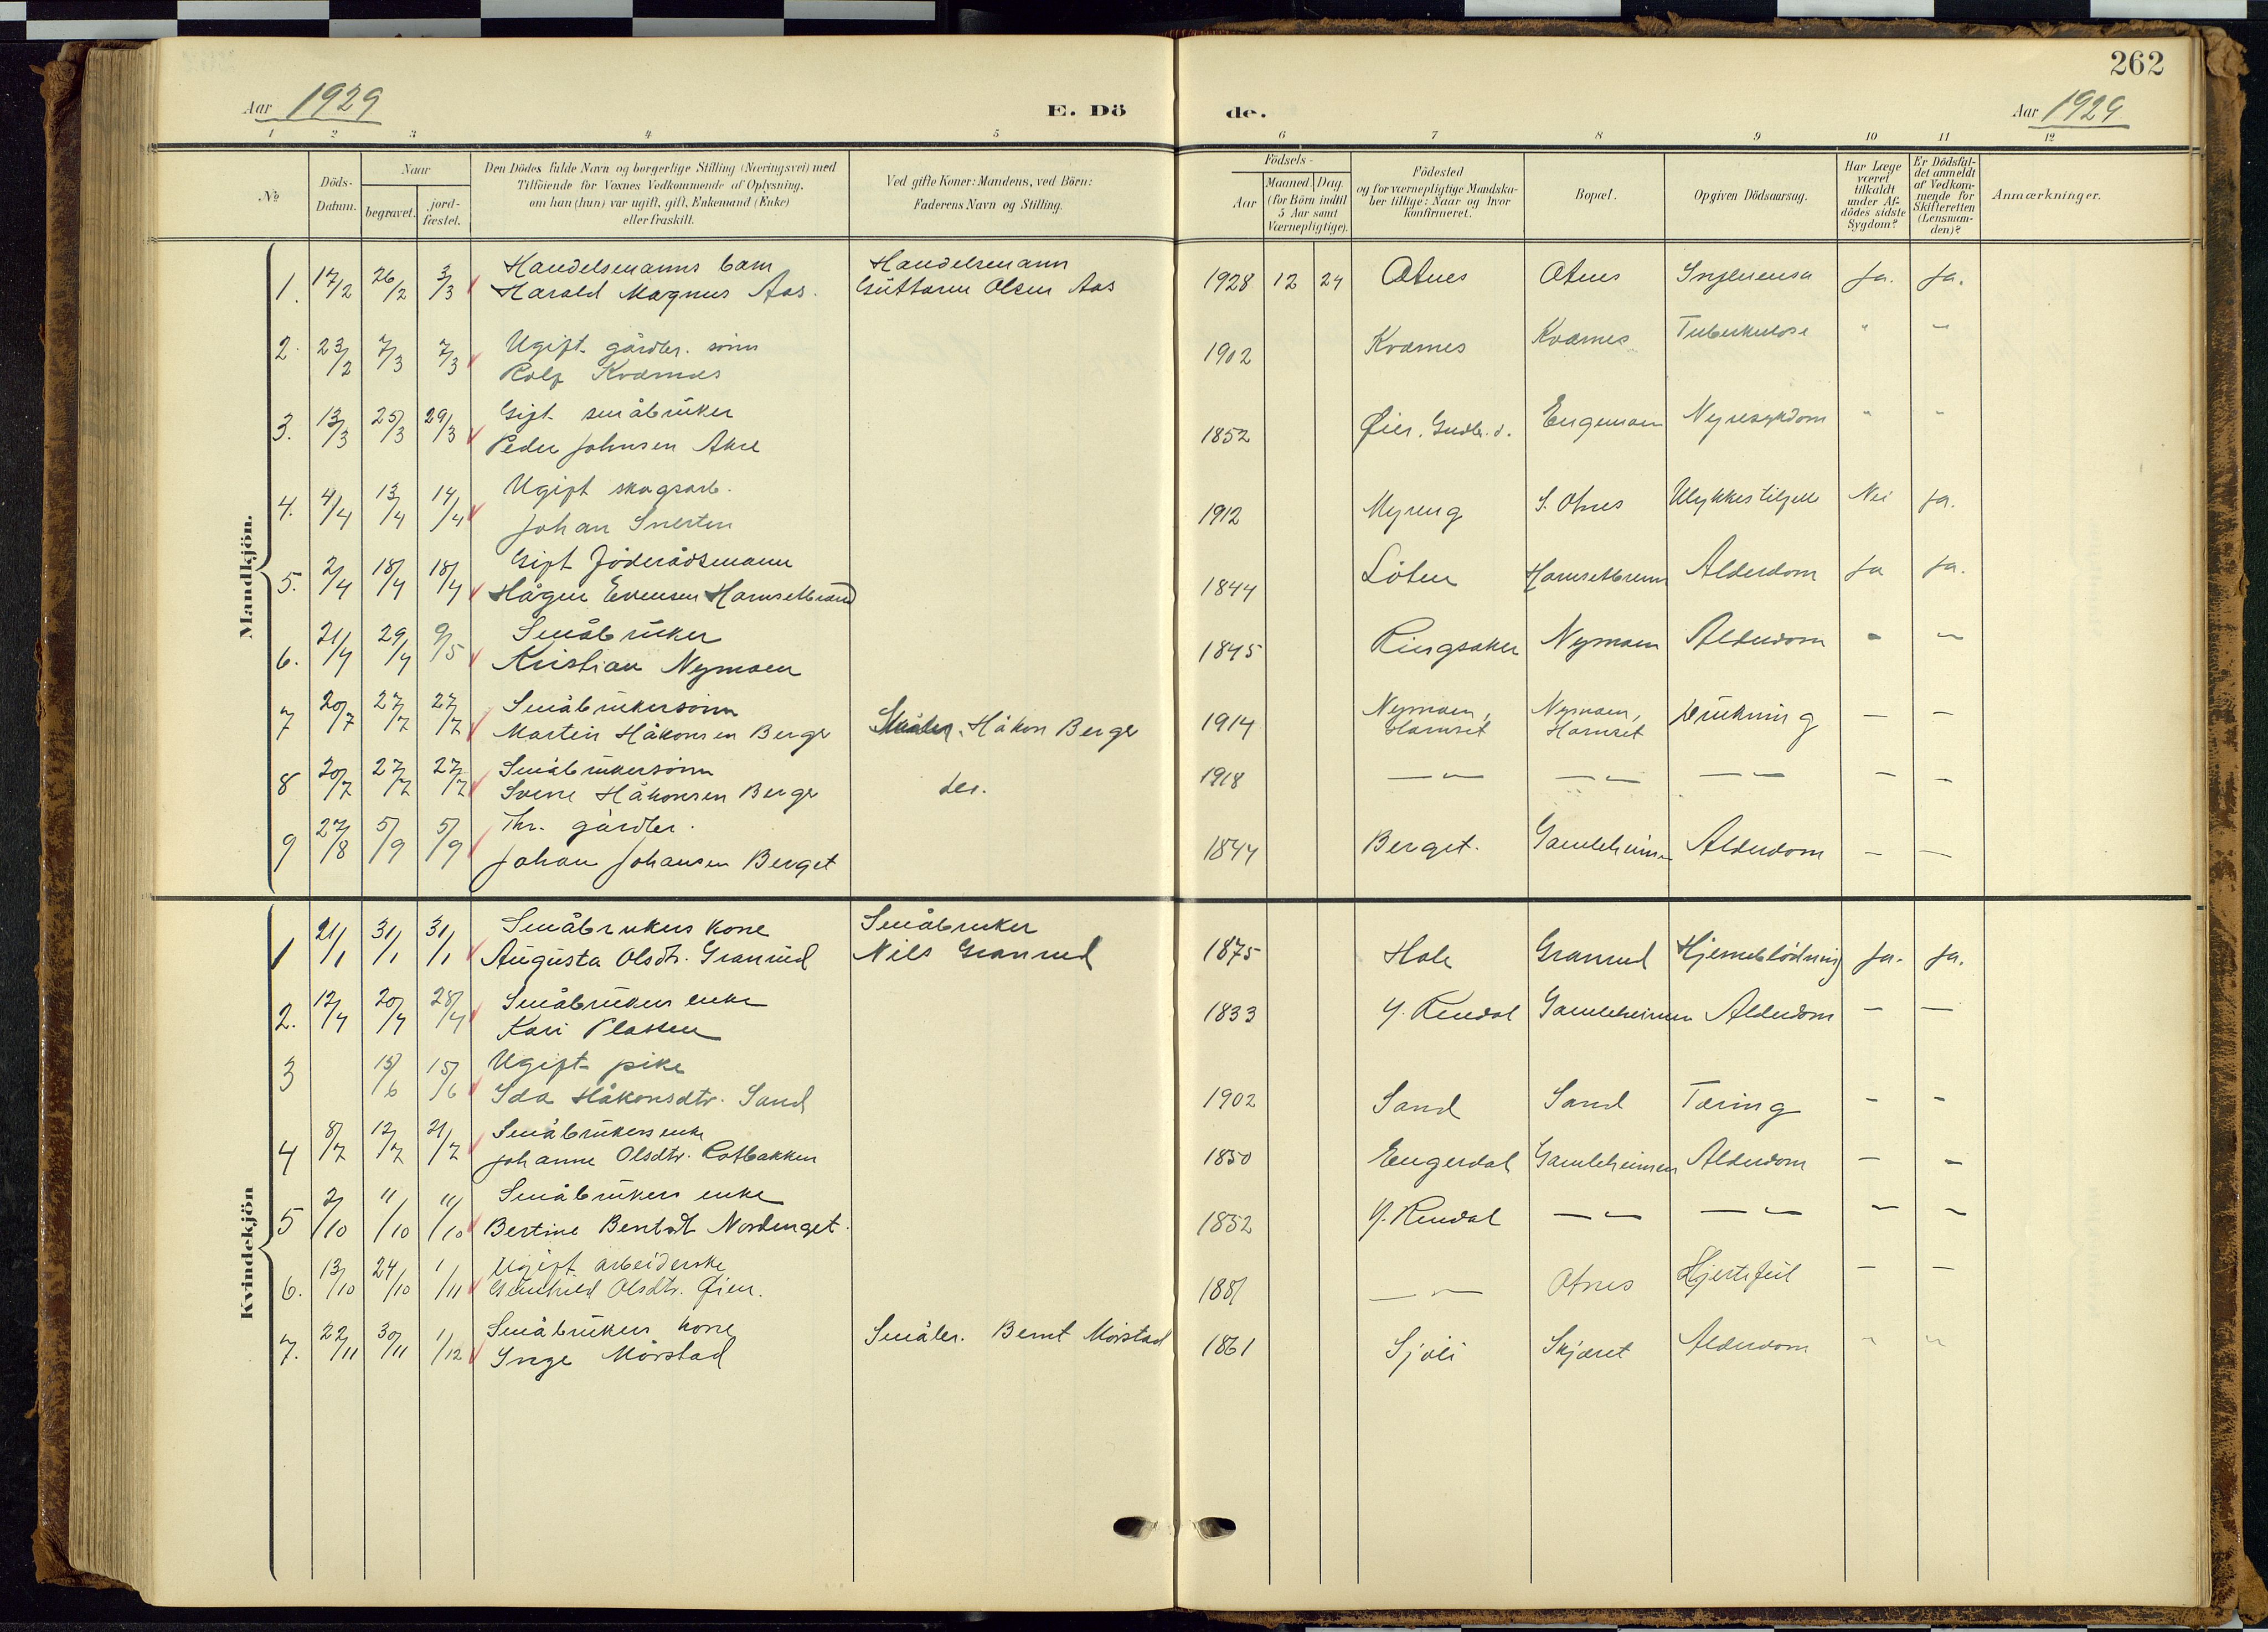 262
Aar 1929
E. Dö
de.
Aar 1929
1 2 3 4 5 6 7 8 9 10 11 12
№
Döds-
Datum.
Naar
begravet.
jord-
fæstet.
Den Dödes fulde Navn og borgerlige Stilling (Næringsvei) med
Tilföiende for Voxnes Vedkommende af Oplysning,
om han (hun) var ugift, gift, Enkemand (Enke)
eller fraskilt.
Ved gifte Koner: Mandens, ved Börn:
Faderens Navn og Stilling.
Födsels-
Aar
Maaned. Dag.
(for Börn indtil
5 Aar samt
Værnepligtige).
Födested
og for værnepligtige Mandska-
ber tillige: Naar og hvor
konfirmeret.
Bopæl.
Opgiven Dödsaarsag.
Har Læge
været
tilkaldt
under Af-
dödes sidste
Sygdom?
Er Dödsfal-
det anmeldt
af Vedkom-
mende for
Skifteretten
(Lensman-
den)?
Anmærkninger.
Mandkjön.
Handelsmanns barn Handelsmann
1. 17/2 26/2 3/3 Harald Magnus Aas. Guttorm Olsen Aas 1928 12 24 Otnes Otnes Influensa Ja. Ja.
Ugift gårdbr. sönn
2. 23/2 7/3 7/3 Rolf Kværnes 1902 Kværnes Kværnes Tuberkulose " "
Gift småbruker
3. 13/3 25/3 29/3 Peder Johnsen Akre 1852 Öier, Gudbr.d. Engemoen Nyresykdom " "
Ugift skogsarb.
4. 4/4 13/4 14/4 Johan Snerten 1912 Myreng S. Otnes Ulykkestilfelle Nei Ja.
Gift föderådsmann
5. 2/4 18/4 18/4 Hågen Evensen Harnsetbrænd 1844 Löten Alderdom Ja Ja.
Småbruker
6. 21/4 29/4 9/5 Kristian Nymoen 1845 Ringsaker Nymoen Alderdom - -
Småbrukersönn
7 20/7 27/7 27/7 Martin Håkonsen Berger Småbr. Håkon Berger 1914 Nymoen, Harnset Nymoen, Harnset Drukning - -
Småbrukersönn
8 20/7 27/7 27/7 Sverre Håkonsen Berger do. 1918 — " — — " — — " — - -
Fhr. gårdbr.
9 27/8 5/9 5/9 Johan Johansen Berget 1844 Berget. Gamleheimen Alderdom - -
Kvindekjön
Småbrukers kone Småbruker
1 21/1 31/1 31/1 Augusta Olsdtr. Granrud Nils Granrud 1875 Hole Granrud Hjerneblödning Ja. Ja.
Småbrukers enke
2. 12/4 20/4 28/4 Kari Plassen 1833 Y. Rendal Gamleheimen Alderdom - -
Ugift pike
3 15/6 15/6 Ida Håkonsdtr. Sand 1902 Sand Sand Tæring - -
Småbrukers enke
4 8/7 12/7 21/7 Johanne Olsdtr. Rotbakken 1850 Engerdal Gamleheimen Alderdom - -
Småbrukers enke
5 2/10 11/10 11/10 Bertine Berntsdt Nordenget. 1852 Y. Rendal — " — — " — - -
Ugift arbeiderske
6. 13/10 24/10 1/11 Olsdtr. Öien. 1881 — " — Otnes Hjertefeil - -
Småbrukers kone
7. 22/11 30/11 1/12 Inge Mörstad Småbr. Bernt Mörstad 1861 Sjöli Skjæret Alderdom " "